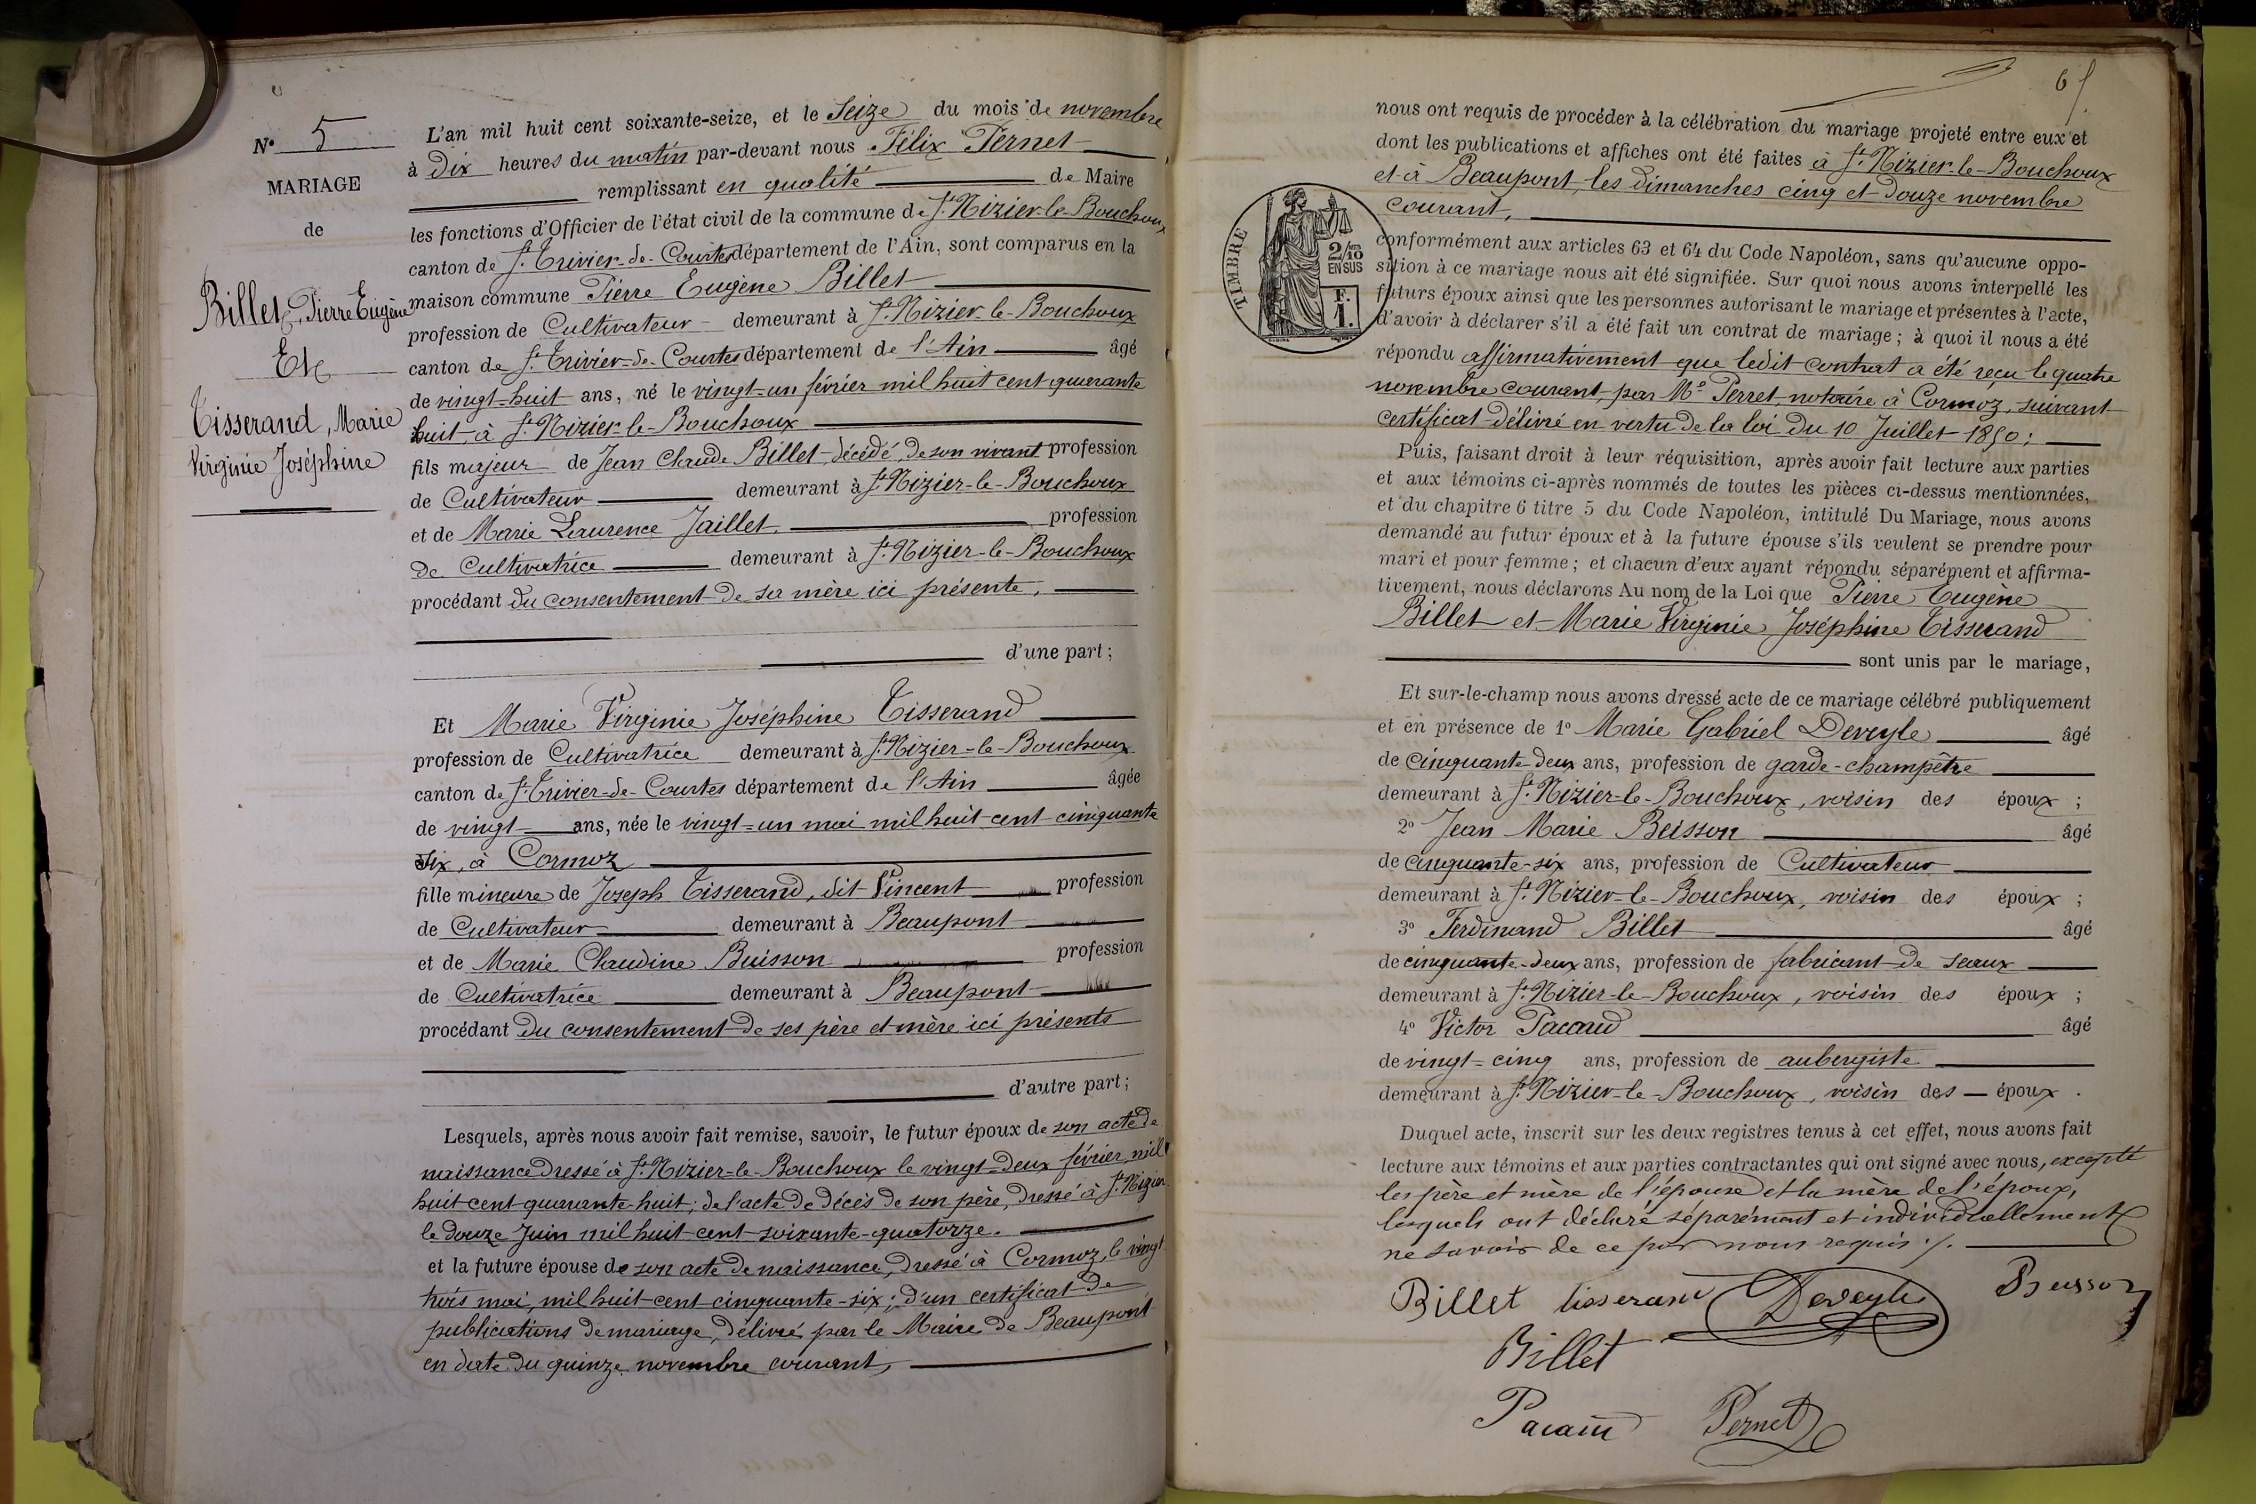 N° 5
MARIAGE
de
Billet, Pierre Eugène
Et
Tisserand, Marie
Virginie Joséphine
L'an mil huit cent soixante-seize, et le Seize du mois de novembre
à Dix heures du matin par-devant nous Félix Pernet
remplissant en qualité de Maire
les fonctions d'Officier de l'état civil de la commune de St Nizier-le-Bouchoux
canton de St Trivier-de-Courtes département de l'Ain, sont comparus en la
maison commune Pierre Eugène Billet
profession de Cultivateur demeurant à St Nizier-le-Bouchoux
canton de St Trivier-de-Courtes département de l'Ain âgé
de vingt-huit ans, né le vingt-un février mil huit cent quarante
huit, à St Nizier-le-Bouchoux
fils majeur de Jean Claude Billet, décédé, de son vivant profession
de Cultivateur demeurant à St Nizier-le-Bouchoux
et de Marie Laurence Jaillet, profession
de Cultivatrice demeurant à St Nizier-le-Bouchoux
procédant du consentement de sa mère ici présente,
d'une part;
Et Marie Virginie Joséphine Tisserand
profession de Cultivatrice demeurant à St Nizier-le-Bouchoux
canton de St Trivier-de-Courtes département de l'Ain âgée
de vingt ans, née le vingt-un mai mil huit cent cinquante
six, à Cormoz
fille mineure de Joseph Tisserand, dit Vincent profession
de Cultivateur demeurant à Beaupont
et de Marie Claudine Buisson profession
de Cultivatrice demeurant à Beaupont
procédant du consentement de ses père et mère ici présents
d'autre part;
Lesquels, après nous avoir fait remise, savoir, le futur époux de son acte de
naissance dressé à St Nizier-le-Bouchoux le vingt-deux février mil
huit cent quarante-huit; de l'acte de décès de son père, dressé à St Nizier
le douze Juin mil huit cent soixante-quatorze.
et la future épouse de son acte de naissance, dressé à Cormoz, le vingt
trois mai, mil huit cent cinquante-six; d'un certificat de
publications de mariage, délivré par le Maire de Beaupont
en date du quinze novembre courant,
65
nous ont requis de procéder à la célébration du mariage projeté entre eux et
dont les publications et affiches ont été faites à St Nizier-le-Bouchoux
et à Beaupont, les dimanches cinq et douze novembre
courant,
TIMBRE
2/10
EN SUS
F.
1.
conformément aux articles 63 et 64 du Code Napoléon, sans qu'aucune oppo-
sition à ce mariage nous ait été signifiée. Sur quoi nous avons interpellé les
futurs époux ainsi que les personnes autorisant le mariage et présentes à l'acte,
d'avoir à déclarer s'il a été fait un contrat de mariage; à quoi il nous a été
répondu affirmativement que ledit contrat a été reçu le quatre
novembre courant, par Me Perret, notaire à Cormoz, suivant
certificat délivré en vertu de la loi du 10 Juillet 1850;
Puis, faisant droit à leur réquisition, après avoir fait lecture aux parties
et aux témoins ci-après nommés de toutes les pièces ci-dessus mentionnées,
et du chapitre 6 titre 5 du Code Napoléon, intitulé Du Mariage, nous avons
demandé au futur époux et à la future épouse s'ils veulent se prendre pour
mari et pour femme; et chacun d'eux ayant répondu séparément et affirma-
tivement, nous déclarons Au nom de la Loi que Pierre Eugène
Billet et Marie Virginie Joséphine Tisserand
sont unis par le mariage,
Et sur-le-champ nous avons dressé acte de ce mariage célébré publiquement
et en présence de 1° Marie Gabriel Deveyle âgé
de cinquante-deux ans, profession de garde-champêtre
demeurant à St Nizier-le-Bouchoux, voisin des époux;
2° Jean Marie Beisson âgé
de cinquante-six ans, profession de Cultivateur
demeurant à St Nizier-le-Bouchoux, voisin des époux;
3° Ferdinand Billet âgé
de cinquante-deux ans, profession de fabricant de seaux
demeurant à St Nizier-le-Bouchoux, voisin des époux;
4° Victor Pacaud âgé
de vingt-cinq ans, profession de aubergiste
demeurant à St Nizier-le-Bouchoux, voisin des époux.
Duquel acte, inscrit sur les deux registres tenus à cet effet, nous avons fait
lecture aux témoins et aux parties contractantes qui ont signé avec nous, excepté
les père et mère de l'épouse et la mère de l'époux,
lesquels ont déclaré séparément et individuellement
ne savoir de ce par nous requis ./.
Billet tisserand Deveyle Beisson
Billet
Pacaud Pernet